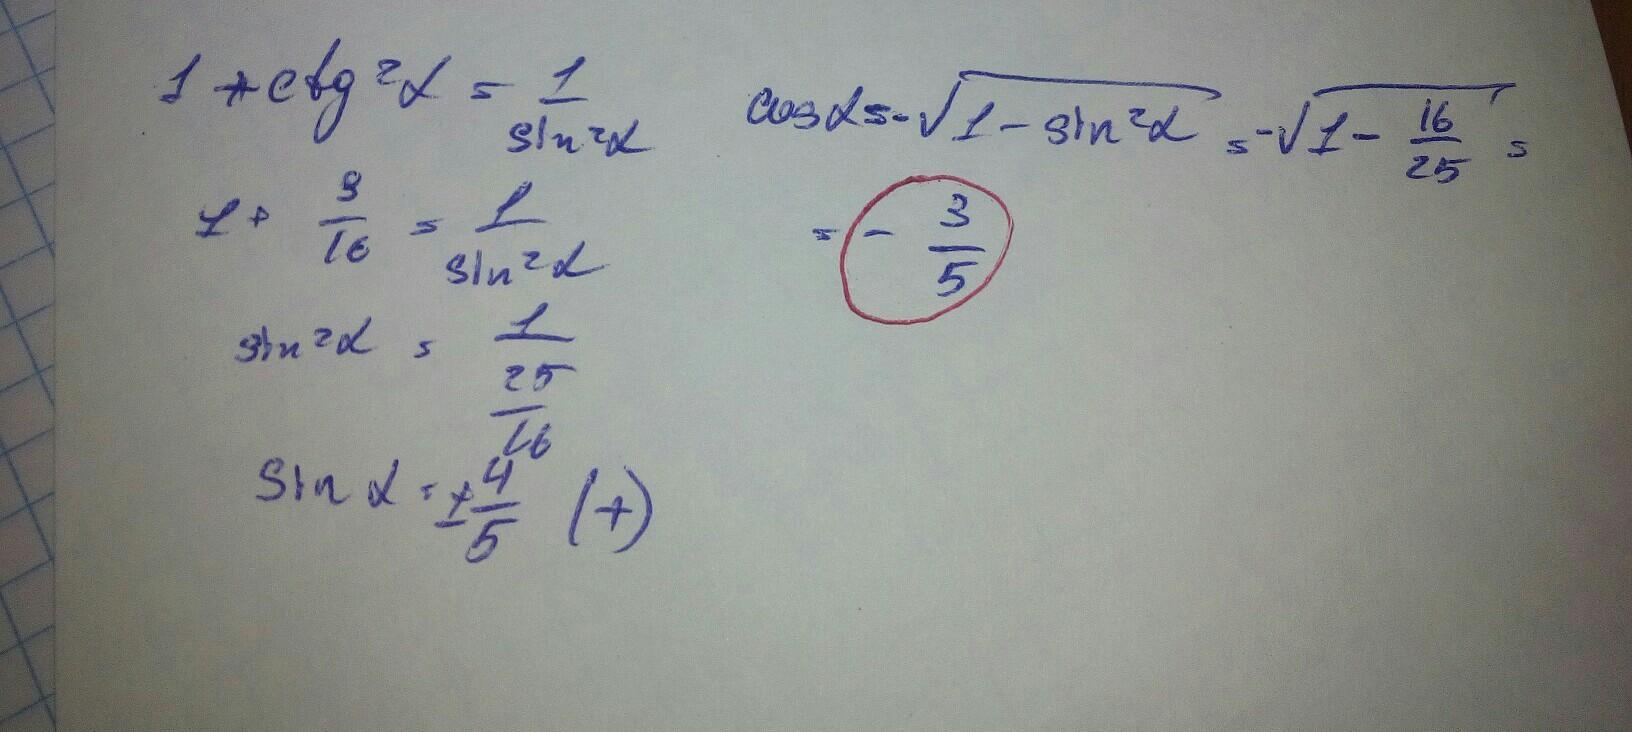 1 + ctg²α = 1/sin²α
1 + 9/16 = 1/sin²α
sin²α = 1/(25/16)
sin α = ±4/5 (+)
cos α = -√(1 - sin²α) = -√(1 - 16/25) =
= - 3/5